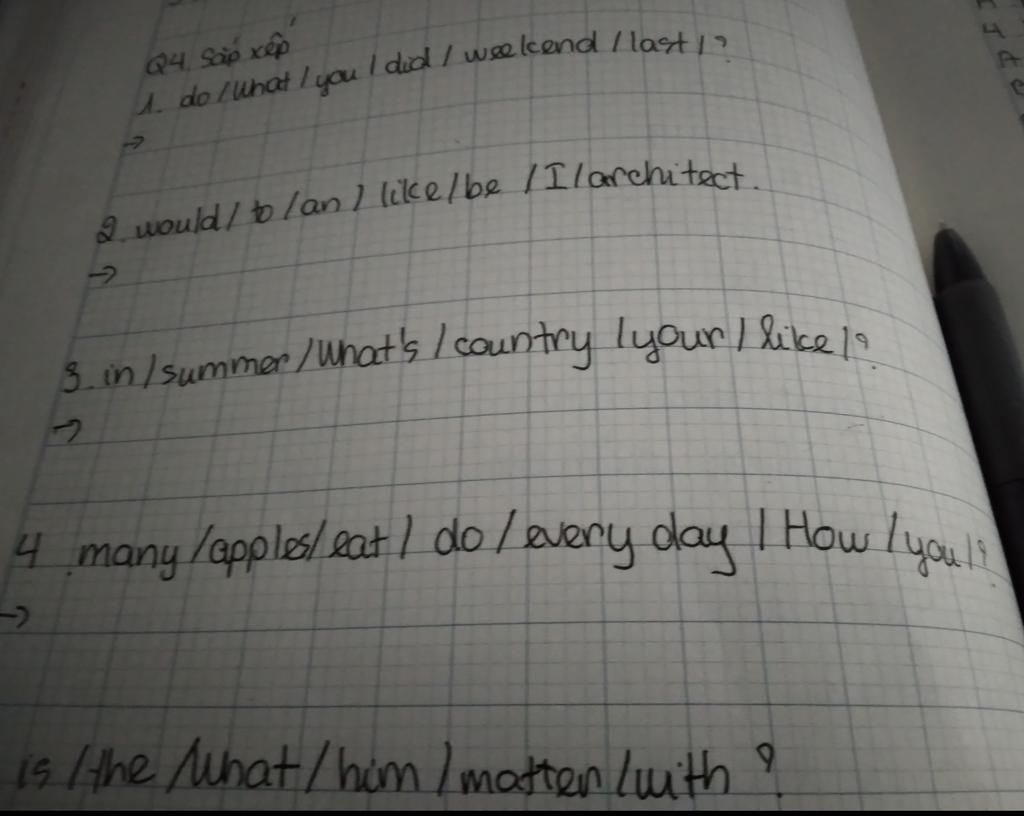 Q4 Sắp xếp
1. do / what / you / did / weekend / last / ?
→
2. would / to / an / like / be / I / architect.
→
3. in / summer / What's / country / your / like / ?
→
4. many / apples / eat / do / every day / How / you / ?
→
is / the / What / him / matter / with ?